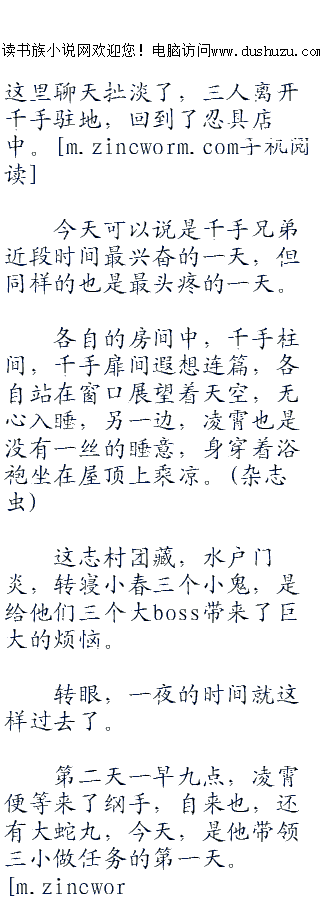 读书族小说网欢迎您！电脑访问www.dushuzu.com
这里聊天扯淡了，三人离开
千手驻地，回到了忍具店
中。[m.zincworm.com手机阅
读]
今天可以说是千手兄弟
近段时间最兴奋的一天，但
同样的也是最头疼的一天。
各自的房间中，千手柱
间，千手扉间遐想连篇，各
自站在窗口展望着天空，无
心入睡，另一边，凌霄也是
没有一丝的睡意，身穿着浴
袍坐在屋顶上乘凉。(杂志
虫)
这志村团藏，水户门
炎，转寝小春三个小鬼，是
给他们三个大boss带来了巨
大的烦恼。
转眼，一夜的时间就这
样过去了。
第二天一早九点，凌霄
便等来了纲手，自来也，还
有大蛇丸，今天，是他带领
三小做任务的第一天。
[m.zincwor